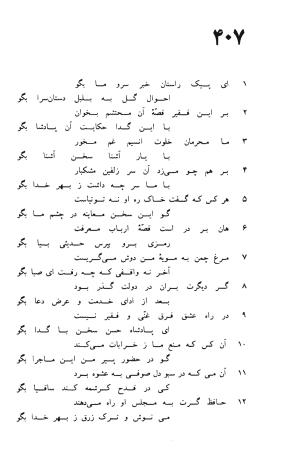 ۴۰۷
۱ ای پیک راستان خبر سرو ما بگو
احوال گل به بلبل دستان‌سرا بگو
۲ بر این فقیر قصّهٔ آن محتشم بخوان
با این گدا حکایت آن پادشا بگو
۳ ما محرمان خلوت انسیم غم مخور
با یار آشنا سخن آشنا بگو
۴ بر هم چو می‌زد آن سر زلفین مشکبار
با ما سر چه داشت ز بهر خدا بگو
۵ هر کس که گفت خاک ره او نه توتیاست
گو این سخن معاینه در چشم ما بگو
۶ هان بر در است قصّهٔ ارباب معرفت
رمزی برو بپرس حدیثی بیا بگو
۷ مرغ چمن به مویهٔ من دوش می‌گریست
آخر نه واقفی که چه رفت ای صبا بگو
۸ گر دیگرت بر آن در دولت گذر بود
بعد از ادای خدمت و عرض دعا بگو
۹ در راه عشق فرق غنّی و فقیر نیست
ای پادشاه حسن سخن با گدا بگو
۱۰ آن کس که منع ما ز خرابات می‌کند
گو در حضور پیر من این ماجرا بگو
۱۱ آن می که در سبو دل صوفی به عشوه برد
کی در قدح کرشمه کند ساقیا بگو
۱۲ حافظ گرت به مجلس او راه می‌دهند
می نوش و ترک زرق ز بهر خدا بگو